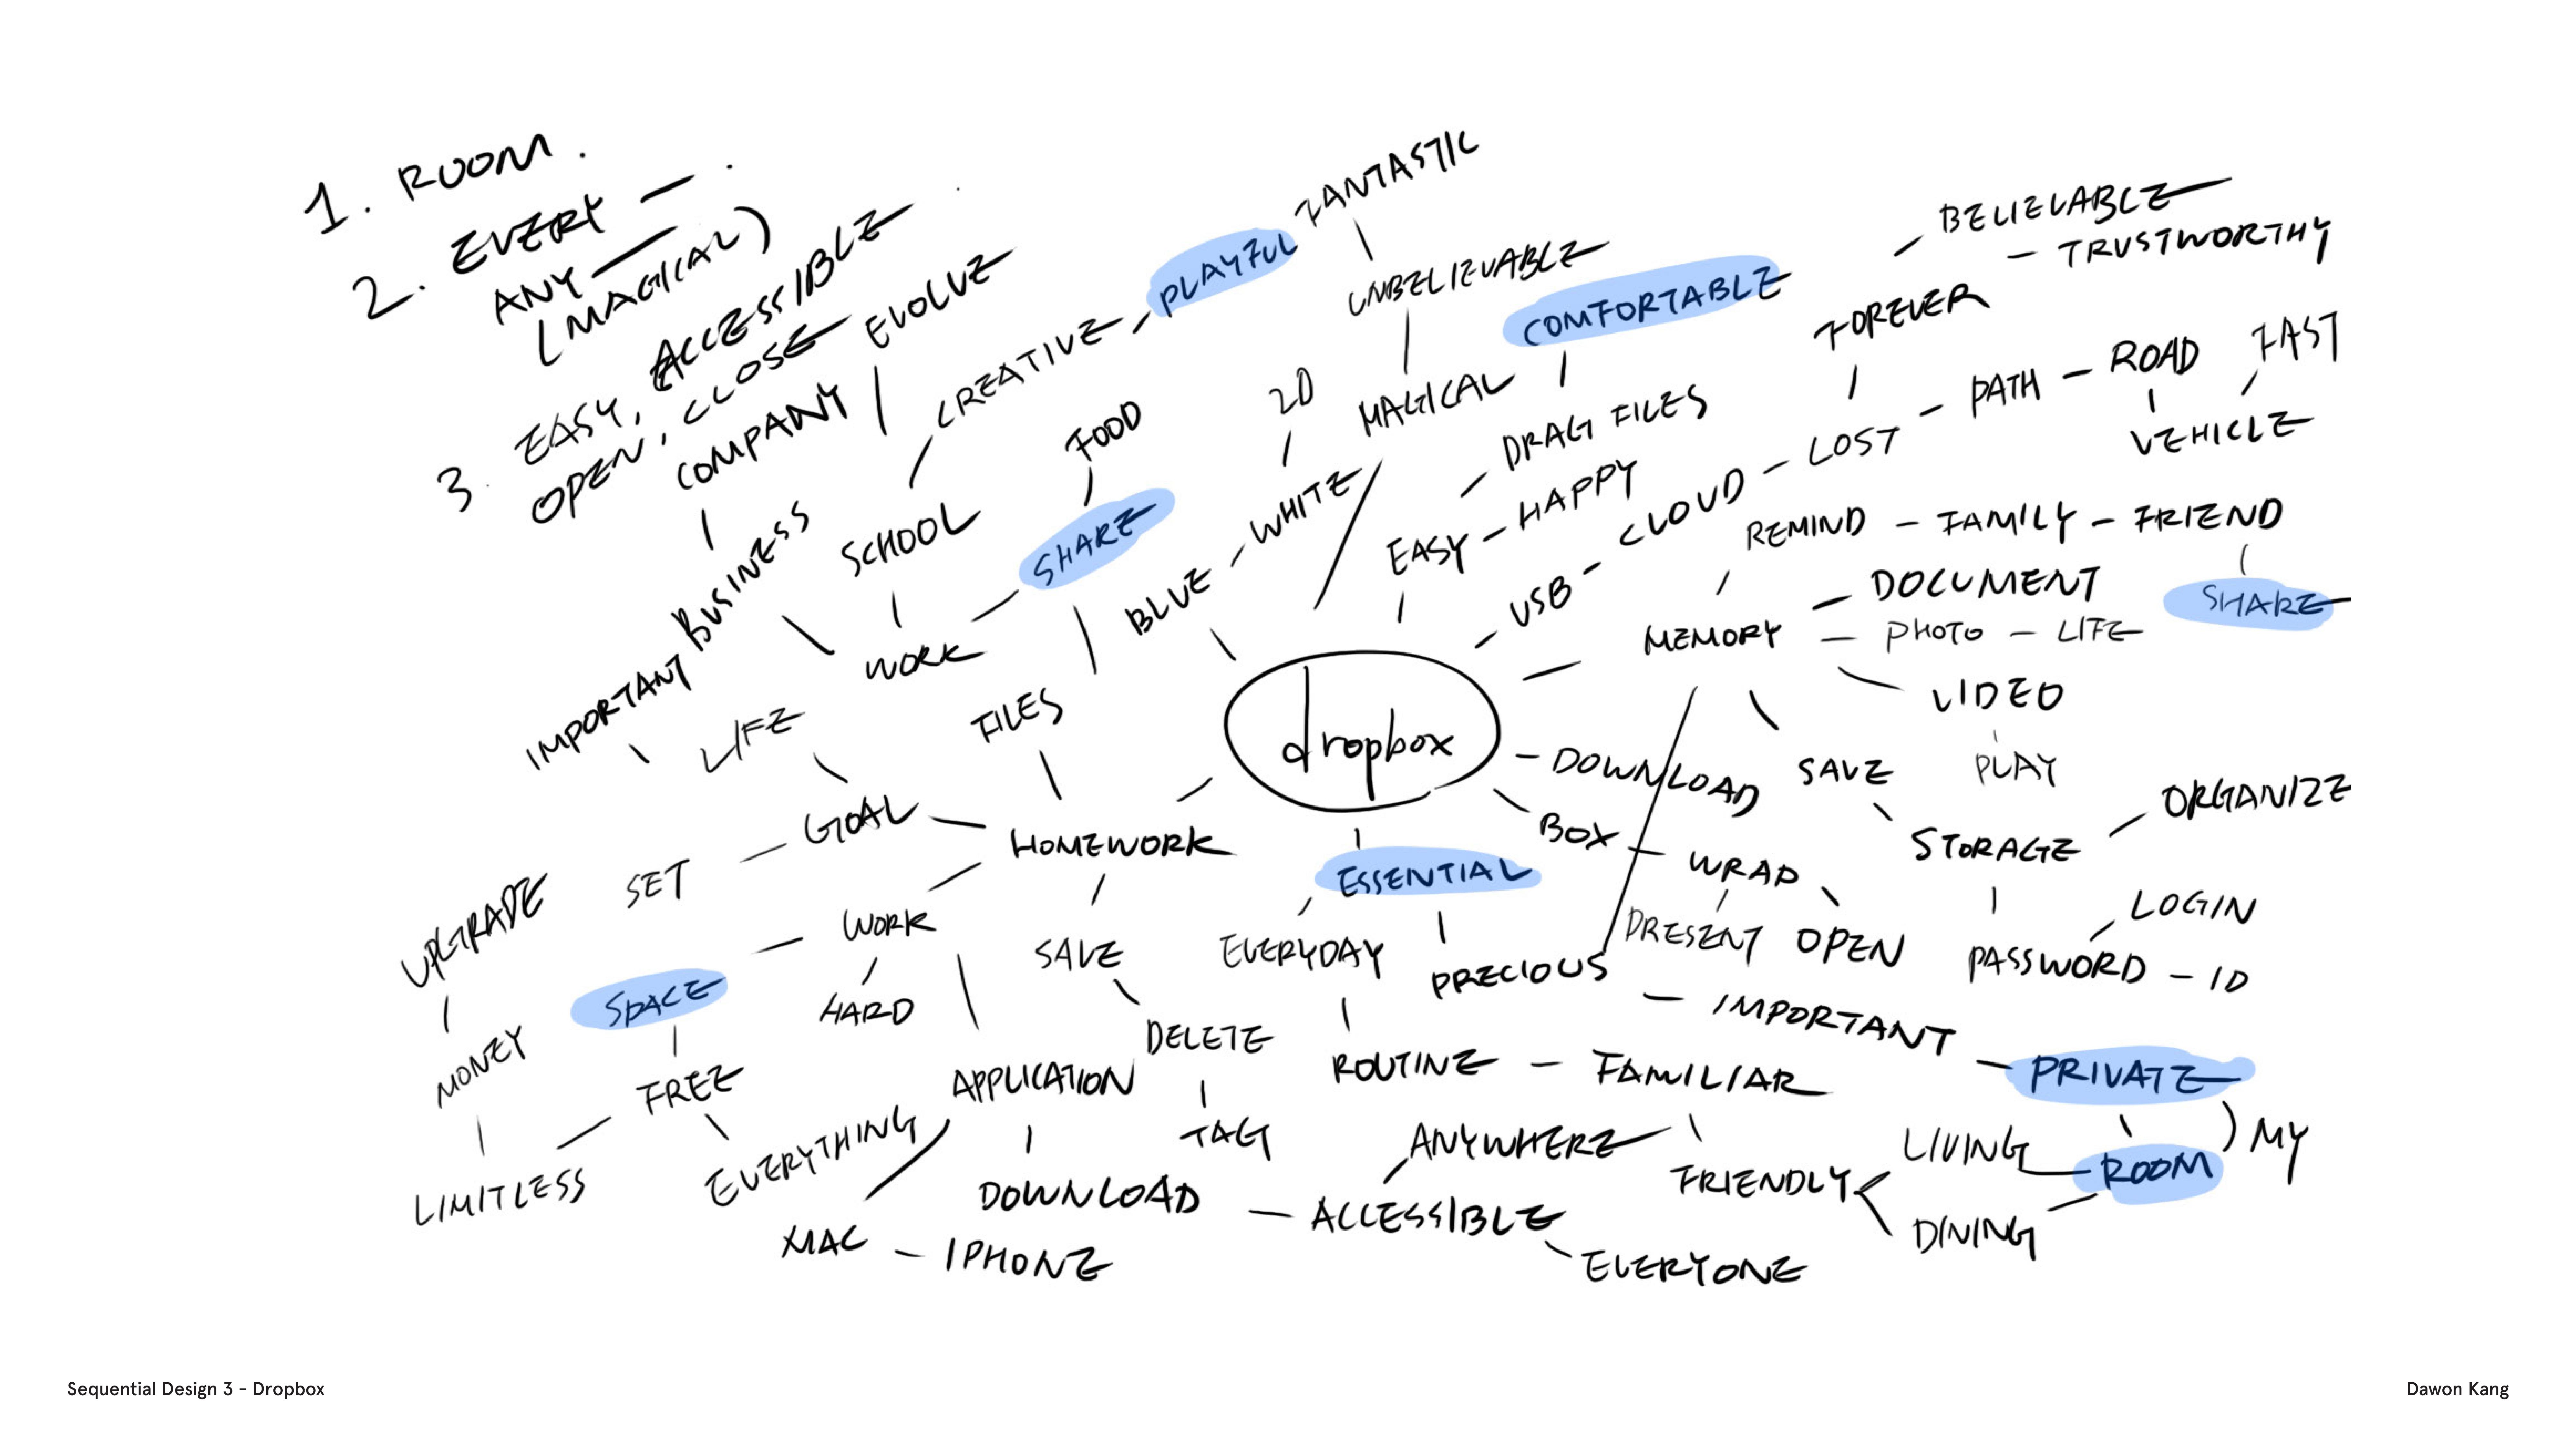 1. ROOM.
2. EVERY —.
ANY —
(MAGICAL)
3. EASY, ACCESSIBLE
OPEN, CLOSE
EVOLVE
COMPANY
BUSINESS
IMPORTANT
CREATIVE
PLAYFUL
SCHOOL
FOOD
SHARE
WORK
FANTASTIC
UNBELIEVABLE
MAGICAL
2D
WHITE
BLUE
COMFORTABLE
DRAG FILES
EASY - HAPPY
BELIEVABLE
TRUSTWORTHY
FOREVER
USB - CLOUD - LOST - PATH - ROAD
FAST
VEHICLE
REMIND - FAMILY - FRIEND
SHARE
MEMORY
DOCUMENT
PHOTO - LIFE
VIDEO
PLAY
SAVE
STORAGE
ORGANIZE
LOGIN
PASSWORD - ID
dropbox
DOWNLOAD
BOX - WRAP
PRESENT
OPEN
ESSENTIAL
EVERYDAY
PRECIOUS
IMPORTANT
PRIVATE
ROOM
MY
ROUTINE - FAMILIAR
FRIENDLY
LIVING
DINING
FILES
HOMEWORK
LIFE
GOAL
SET
UPGRADE
MONEY
LIMITLESS
WORK
HARD
SPACE
FREE
EVERYTHING
SAVE
DELETE
TAG
APPLICATION
DOWNLOAD - ACCESSIBLE
ANYWHERE
EVERYONE
MAC - IPHONE
Sequential Design 3 - Dropbox
Dawon Kang